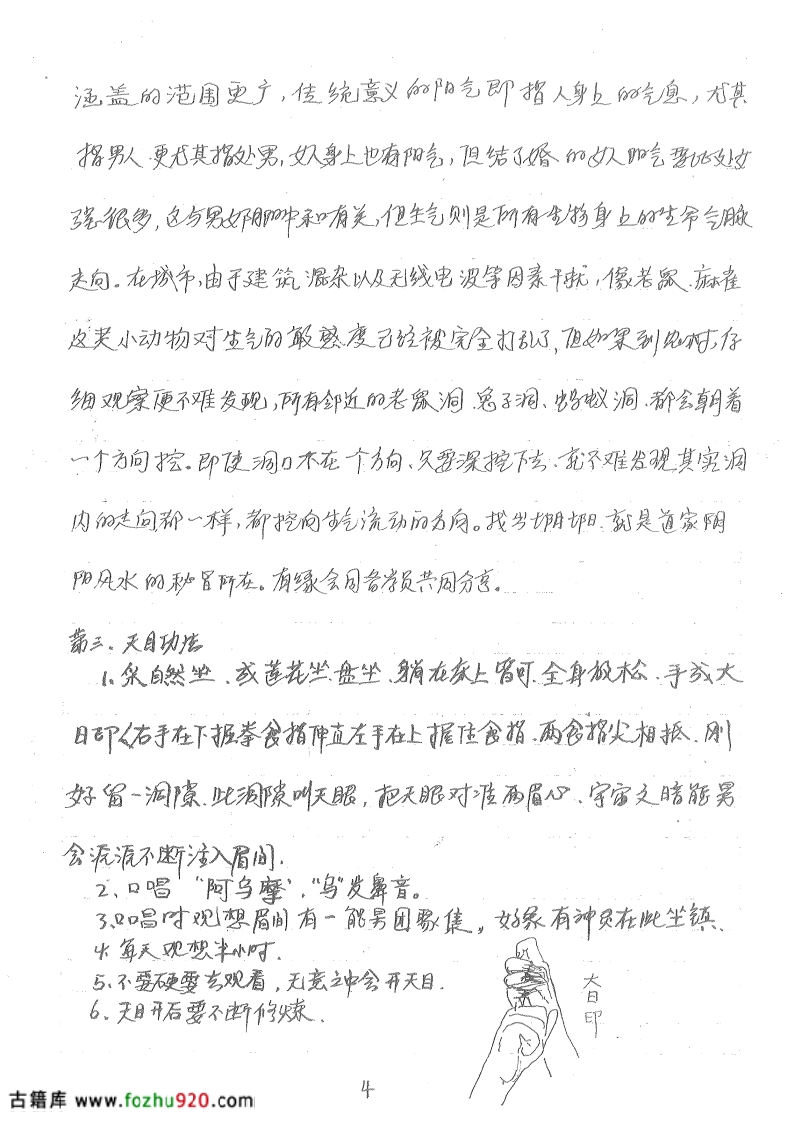 涵盖的范围更广,传统意义的阳气即指人身上的气息,尤其
指男人.更尤其指处男,女人身上也有阳气,但结了婚的女人阳气要比处女
强很多,这与男女阴阳中和有关,但生气则是所有生物身上的生命气脉
走向。在城市,由于建筑混杂以及无线电波等因素干扰,像老鼠.麻雀
这类小动物对生气的敏感度已经被完全打乱了,但如果到农村,仔
细观察便不难发现,所有邻近的老鼠洞.兔子洞、蚂蚁洞.都会朝着
一个方向挖。即使洞口不在一个方向、只要深挖下去.就不难发现其实洞
内的走向都一样,都挖向生气流动的方向。找出阴阳.就是道家阴
阳风水的秘冒所在。有缘会同各学员共同分享。
第三.天目功法
1.采自然坐.或莲花坐.盘坐.躺在床上皆可.全身放松.手成大
日印(右手在下握拳食指伸直左手在上握住食指.两食指尖相抵.刚
好留一洞隙.此洞隙叫天眼,把天眼对准两眉心.宇宙之暗能量
会源源不断注入眉间.
2、口唱“阿乌摩”.“乌”发鼻音。
3.口唱时观想眉间有一能量团聚集,好象有神灵在此坐镇.
4.每天观想半小时.
5.不要硬要去观看,无意之中会开天目.
6.天目开后要不断修炼.
大日印
4
古籍库 www.fozhu920.com